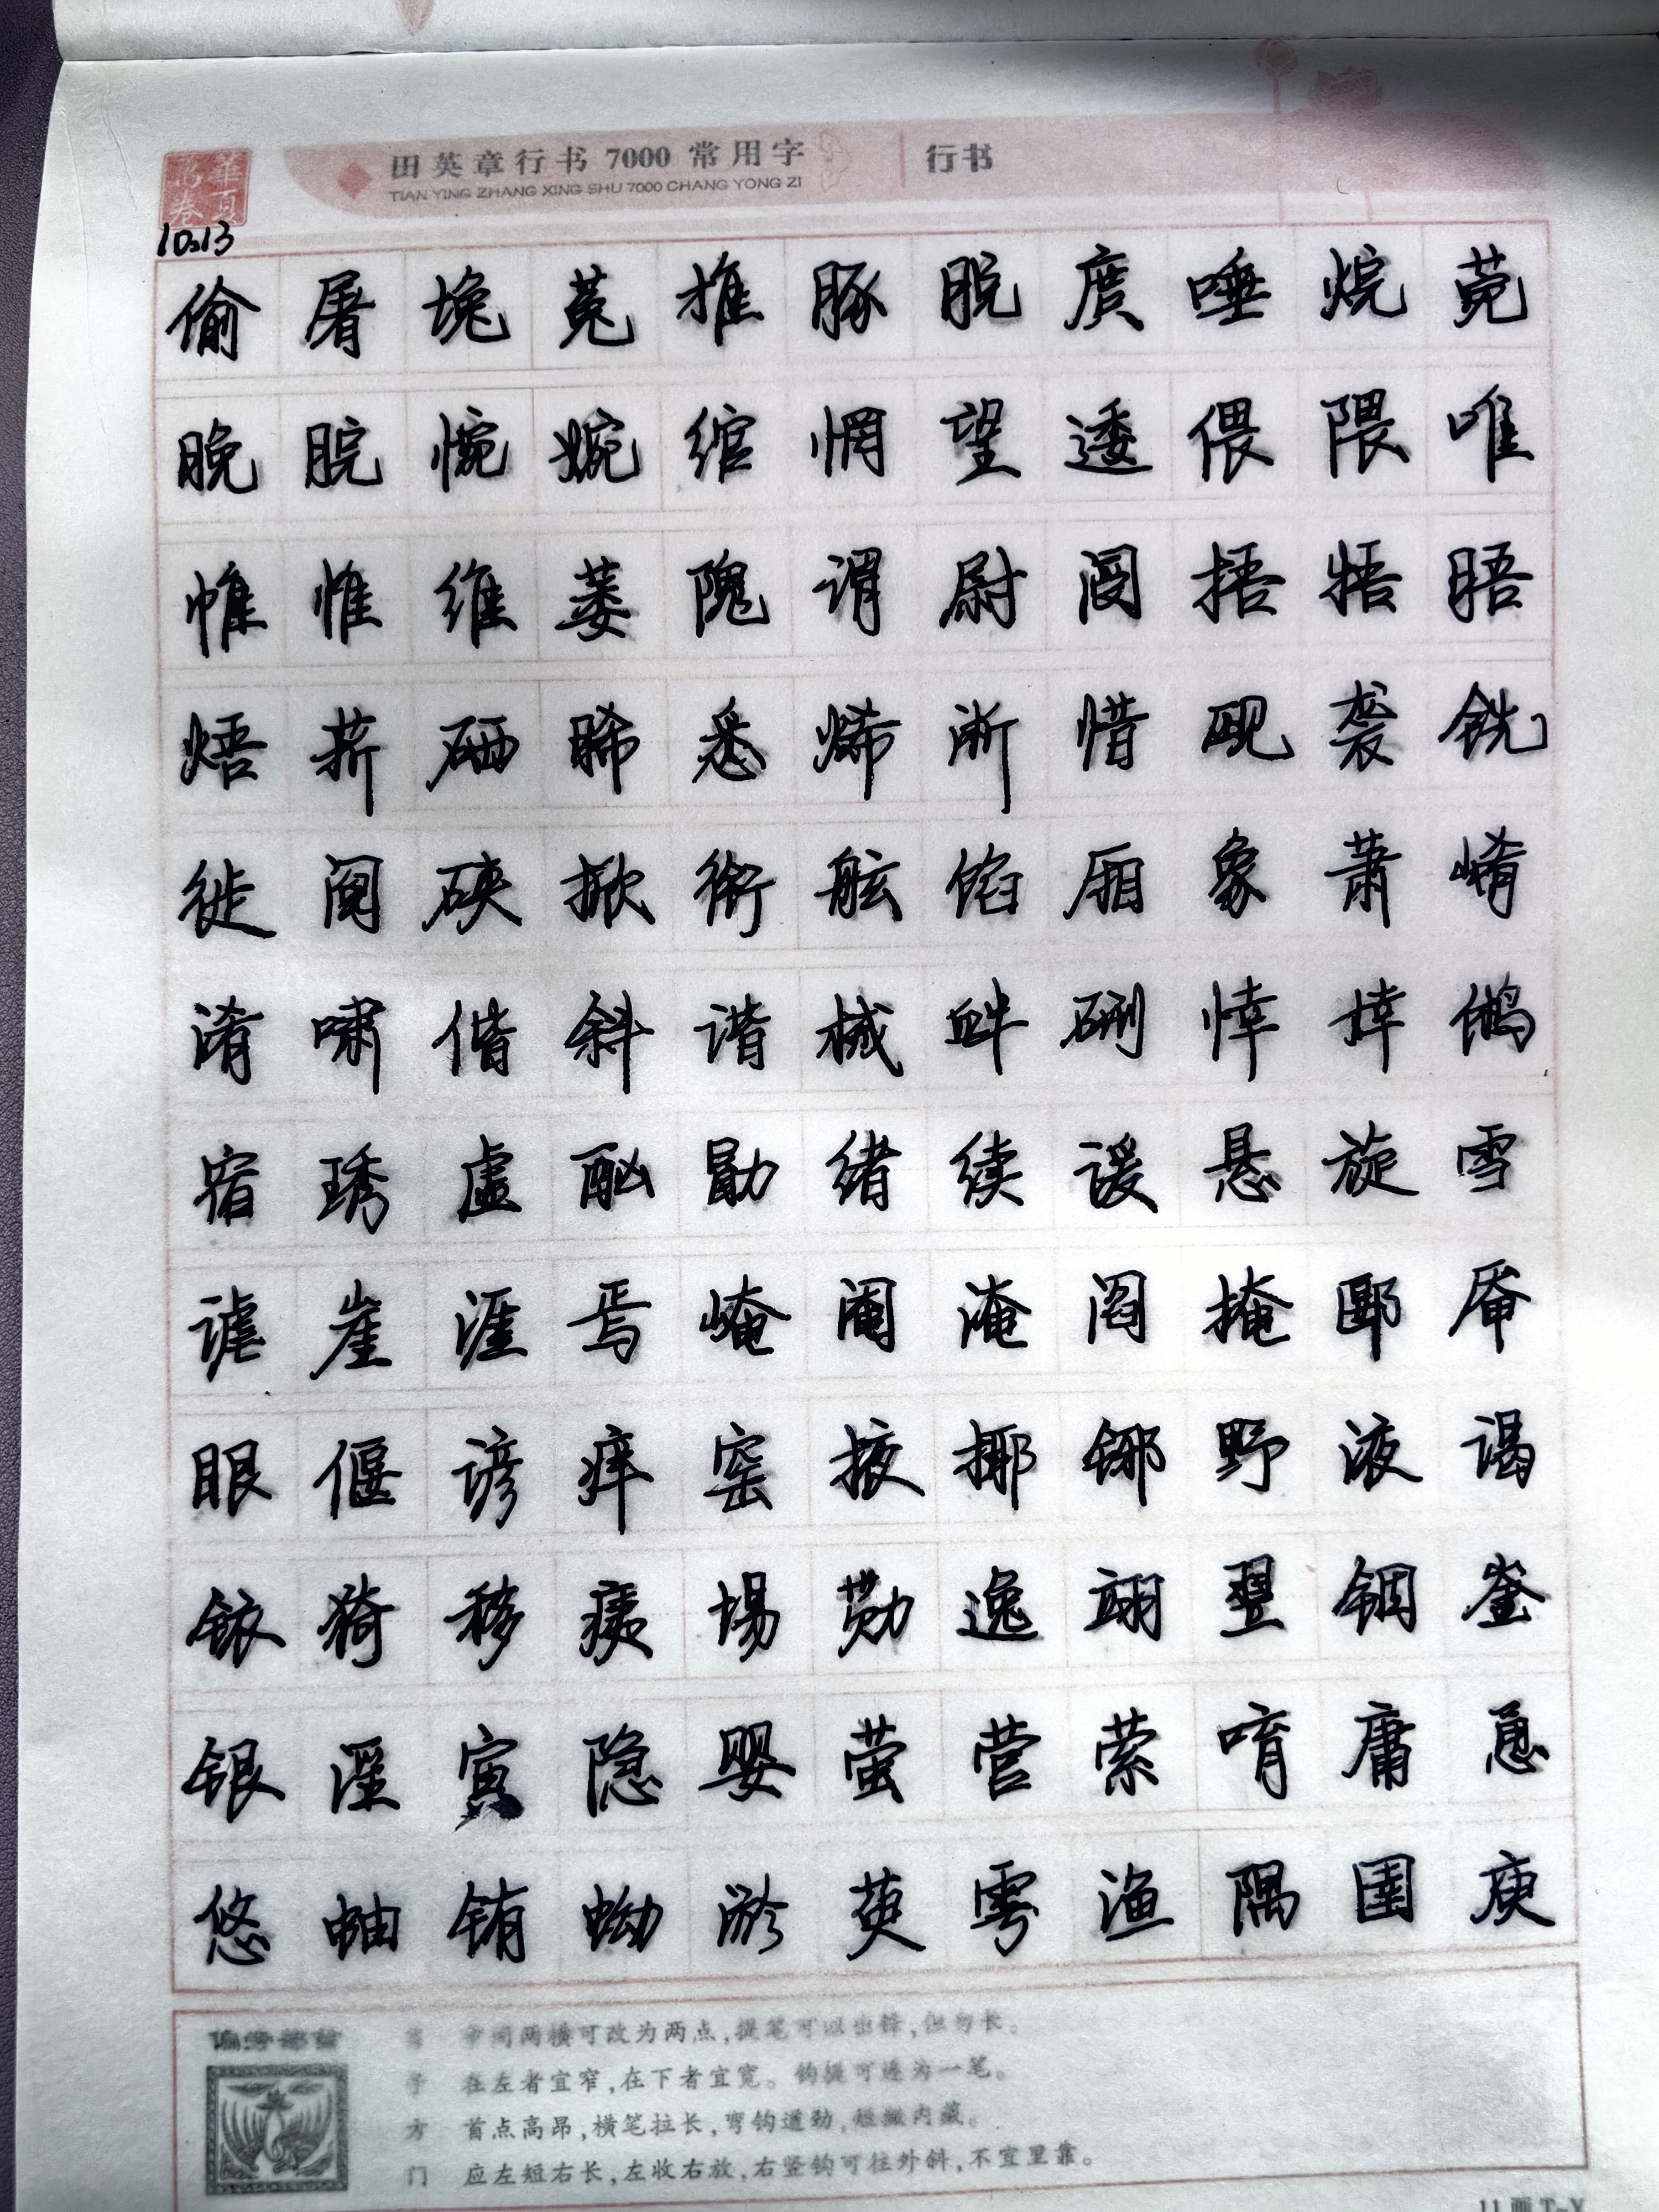 華夏萬卷
田英章行书 7000 常用字 行书
TIAN YING ZHANG XING SHU 7000 CHANG YONG ZI
10.13
偷 屠 堍 菟 推 豚 脱 庹 唾 烷 菀
晚 脘 惋 婉 绾 惘 望 逶 偎 隈 唯
帷 惟 维 萎 隗 谓 尉 阌 捂 牾 晤
焐 菥 硒 晞 悉 烯 淅 惜 觋 袭 铣
徙 阋 硖 掀 衔 舷 馅 厢 象 萧 崤
淆 啸 偕 斜 谐 械 衅 硎 悻 婞 鸺
宿 琇 虚 酗 勖 绪 续 谖 悬 旋 雪
谑 崖 涯 焉 崦 阉 淹 阎 掩 郾 厣
眼 偃 谚 痒 窑 掖 揶 铘 野 液 谒
铱 猗 移 痍 埸 勚 逸 翊 翌 铟 崟
银 淫 寅 隐 婴 萤 营 萦 唷 庸 恿
悠 蚰 铕 蚴 淤 萸 雩 渔 隅 圉 庾
中间两横可改为两点,提笔可以出锋,但勿长。
子 在左者宜窄,在下者宜宽。钩提可连为一笔。
方 首点高昂,横笔拉长,弯钩遒劲,短撇内藏。
门 应左短右长,左收右放,右竖钩可往外斜,不宜里靠。
11画 T~Y